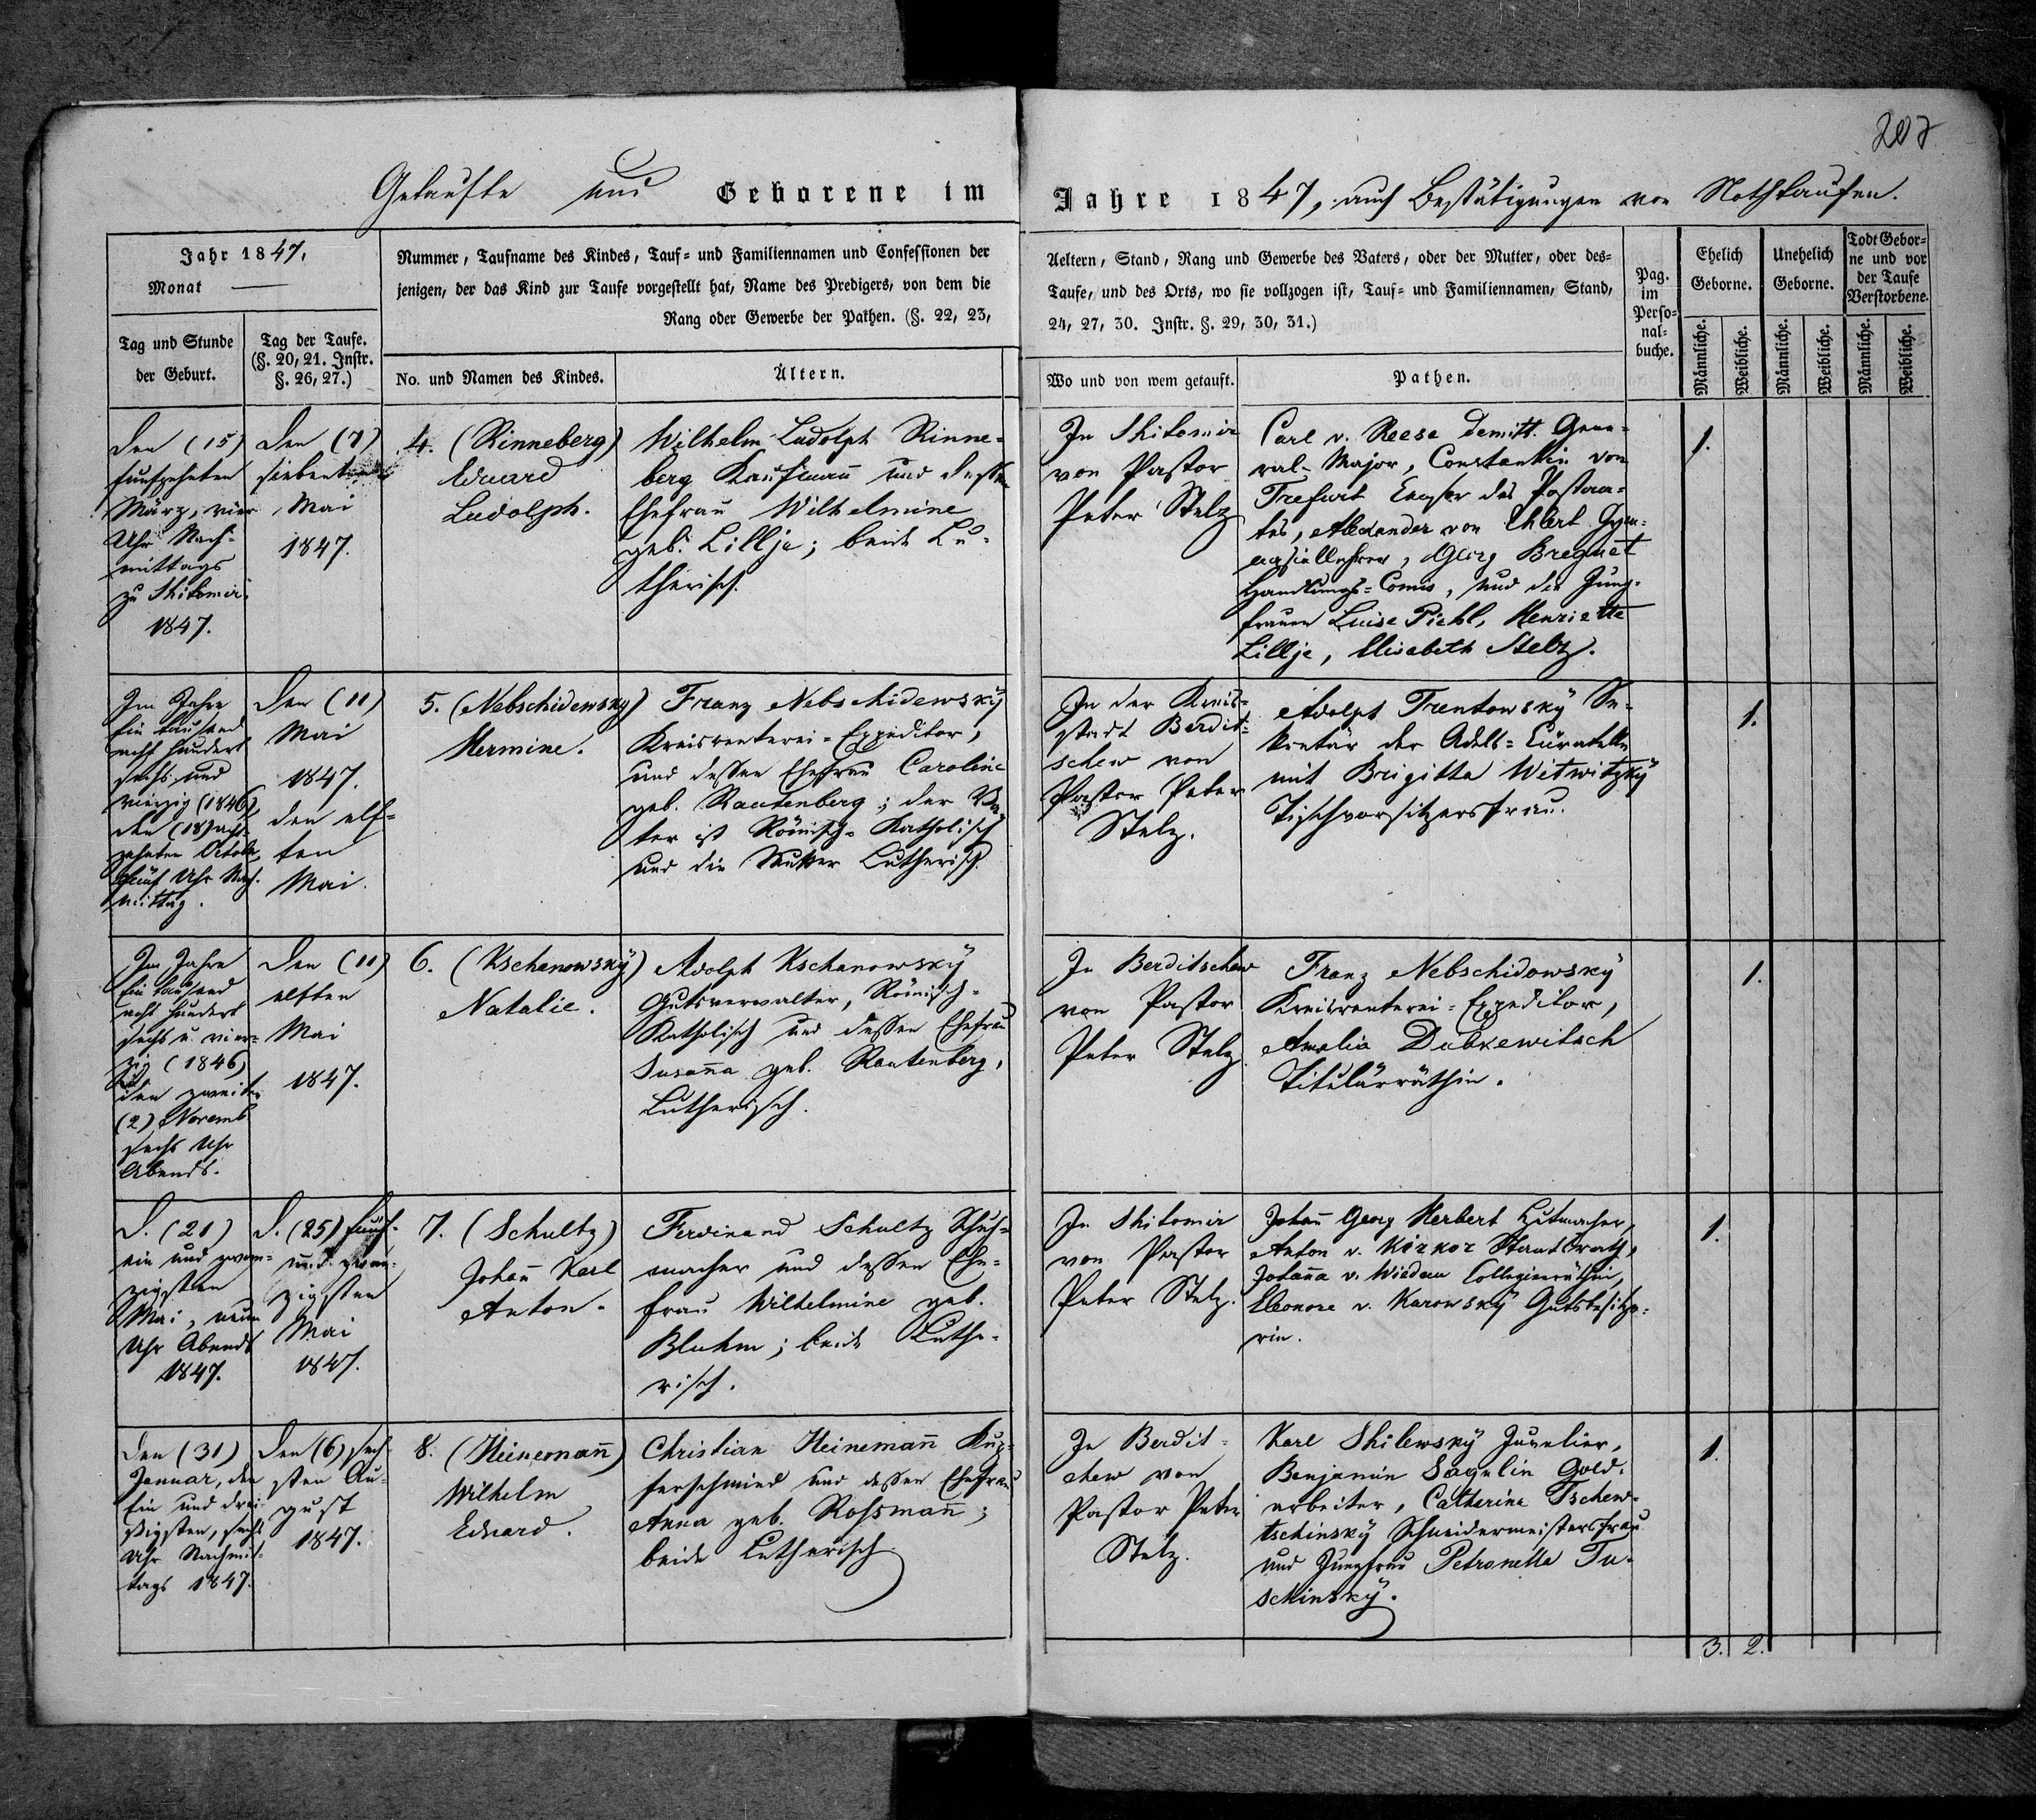 207
Getaufte und Geborene im
Jahre 1847, auch Bestätigungen von Nothtaufen.
Jahr 1847.
Monat
Tag und Stunde
der Geburt.
Tag der Taufe.
(§. 20, 21. Instr.
§. 26, 27.)
Nummer, Taufname des Kindes, Tauf- und Familiennamen und Confessionen der
jenigen, der das Kind zur Taufe vorgestellt hat, Name des Predigers, von dem die
Rang oder Gewerbe der Pathen. (§. 22, 23,
No. und Namen des Kindes.
Ältern.
Aeltern, Stand, Rang und Gewerbe des Vaters, oder der Mutter, oder des-
Taufe, und des Orts, wo sie vollzogen ist, Tauf- und Familiennamen, Stand,
24, 27, 30. Instr. §. 29, 30, 31.)
Wo und von wem getauft.
Pathen.
Pag.
im
Perso-
nal-
buche.
Ehelich
Geborne.
Unehelich
Geborne.
Todt Gebor-
ne und vor
der Taufe
Verstorbene.
Männliche.
Weibliche.
Männliche.
Weibliche.
Männliche.
Weibliche.
Den (15)
funfzehnten
März, vier
Uhr Nach-
mittags
zu Shitomir
1847.
Den (7)
siebenten
Mai
1847.
4. (Rinneberg)
Eduard
Ludolph.
Wilhelm Ludolph Rinne-
berg Kaufmann und dessen
Ehefrau Wilhelmine
geb. Lillje; beide Lu-
therisch.
In Shitomir
von Pastor
Peter Stelz
Carl v. Reese demitt. Gene-
ral-Major, Constantin von
Trefurt des Postam-
tes, Alexander von Ehlert Gym-
nasiallehrer, Georg Breguet
Handlungs-Comis, und die Jung-
frauen Luise Piehl, Henriette
Lillje, Elisabeth Stelz.
1.
Im Jahre
Ein tausend
acht hundert
sechs und
vierzig (1846)
den (18) acht-
zehnten Octobr.
fünf Uhr Nach-
mittag.
Den (11)
Mai
1847.
den elf-
ten
Mai.
5. (Nebschidewsky)
Hermine.
Franz Nebschidewsky
Kreisrenterei-Expeditor,
und dessen Ehefrau Caroline
geb. Rautenberg; der Va-
ter ist Römisch-Katholisch
und die Mutter Lutherisch.
In der Kreis-
stadt Berdit-
schew von
Pastor Peter
Stelz.
Adolph Trentowsky Se-
kretär der Adels-Curatelle
mit Brigitta Witwitzky
Tischvorsitzersfrau.
1.
Im Jahre
Ein tausend
acht hundert
sechs u. vier-
zig (1846)
den zweiten
(2) Novemb
sechs Uhr
Abends.
Den (11)
elften
Mai
1847.
6. (Kschanowsky)
Natalie.
Adolph Kschanowsky
Gutsverwalter, Römisch-
Katholisch und dessen Ehefrau
Susanna geb. Rautenberg,
Lutherisch.
In Berditschew
von Pastor
Peter Stelz
Franz Nebschidowsky
Kreisrenterei-Expeditor,
Amalia Dubkewitsch
Titulärräthin.
1.
D. (21)
ein und zwan-
zigsten
Mai, neun
Uhr Abends
1847.
D. (25) fünf-
und zwan-
zigsten
Mai
1847.
7. (Schultz)
Johann Karl
Anton.
Ferdinand Schultz Schuh-
macher und dessen Ehe-
frau Wilhelmine geb.
Bluhm; beide Luthe-
risch.
In Shitomir
von Pastor
Peter Stelz.
Johann Georg Herbert Hutmacher,
Anton v. Kirkor Staatsrath,
Johanna v. Wiedau Collegienräthin,
Eleonore v. Karowsky Gutsbesitze-
rin.
1.
Den (31)
Januar, den
Ein und drei-
ßigsten, sechs
Uhr Nachmit-
tags 1847.
Den (6) sech-
sten Au-
gust
1847.
8. (Heinemann)
Wilhelm
Eduard.
Christian Heinemann Kup-
ferschmied und dessen Ehefrau
Anna geb. Rossmann;
beide Lutherisch.
In Berdit-
chew von
Pastor Peter
Stelz.
Karl Shilewsky Juvelier,
Benjamin Sagulin Gold-
arbeiter, Catharina Tschew-
tschinsky Schneidermeistersfrau
und Jungfrau Petronella Tu-
schinsky.
1.
3. 2.